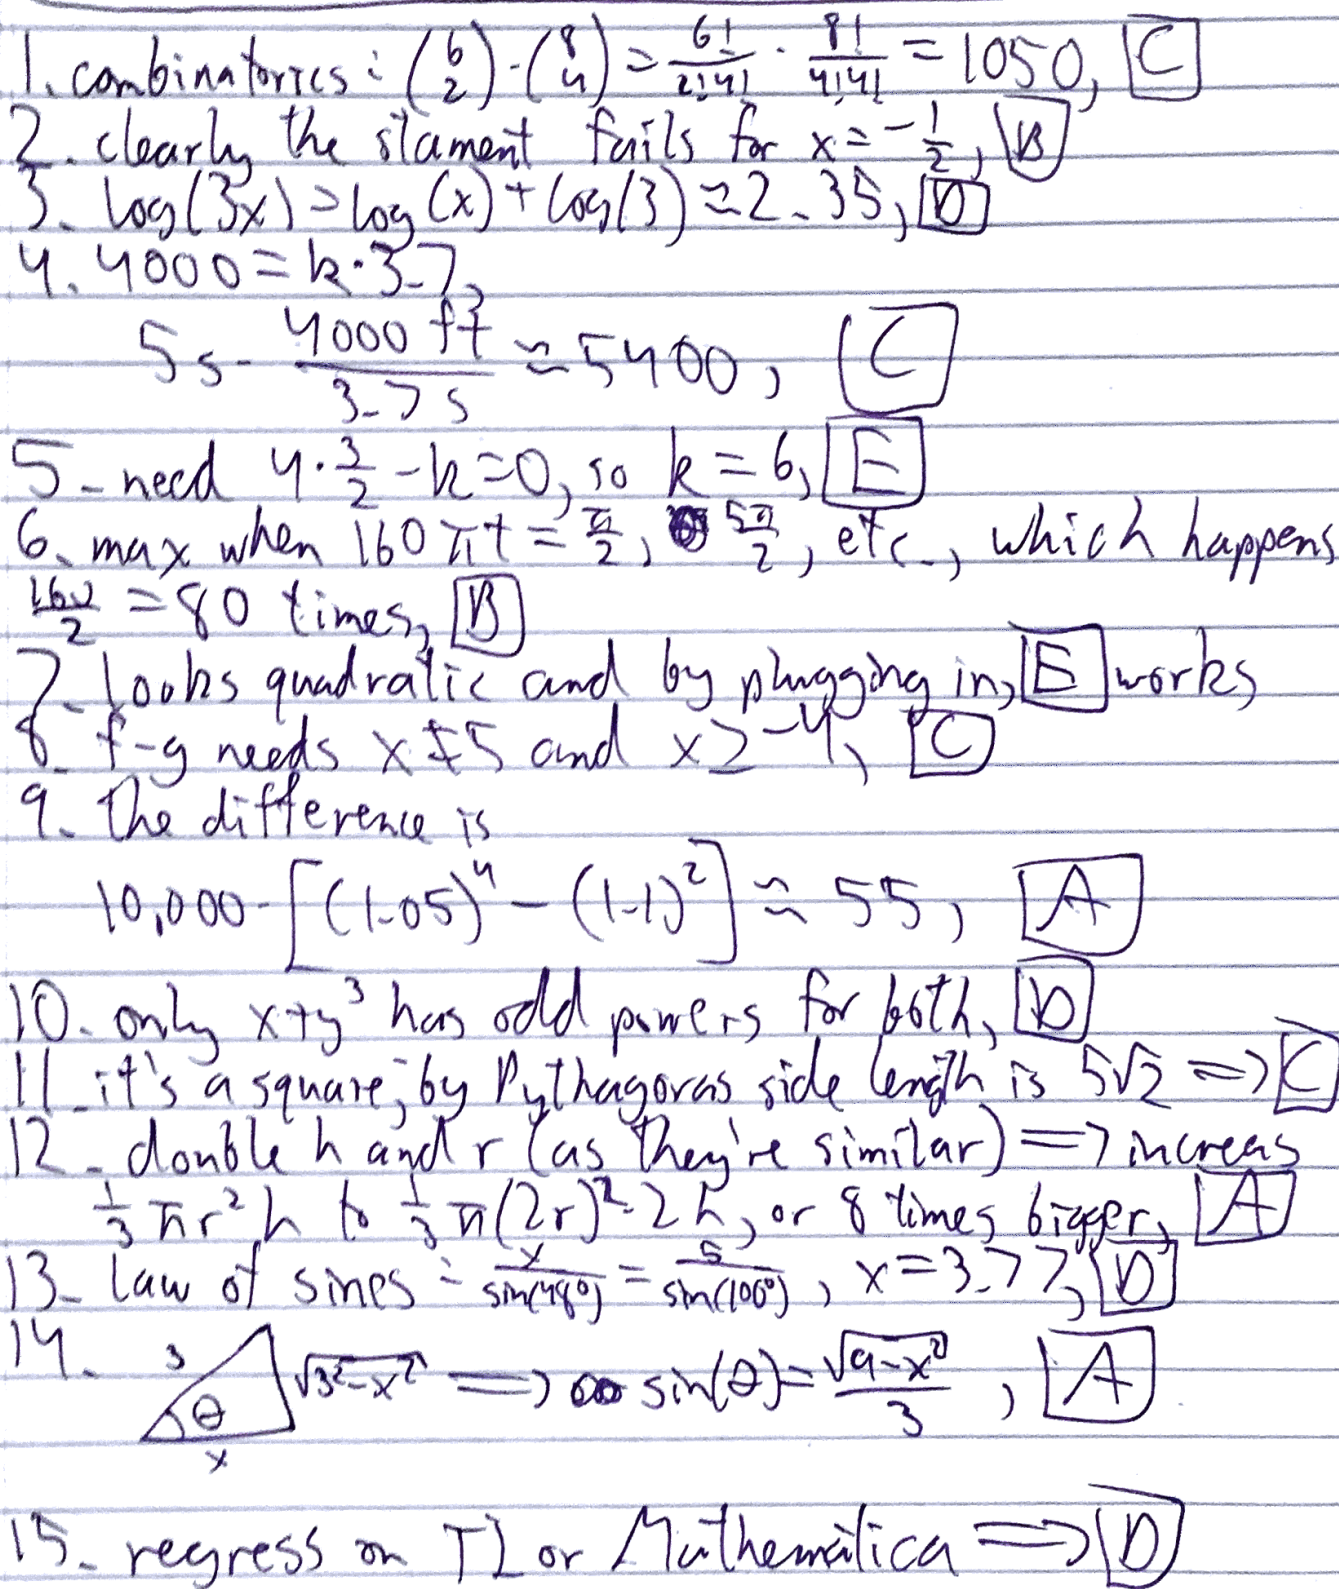 1. combinatorics: (6 2)·(8 4) = 6!/2!4! · 8!/4!4! = 1050, C
2. clearly the stament fails for x = -1/2, B
3. log(3x) = log(x) + log(3) ≈ 2.35, D
4. 4000 = k·3.7,
5s · 4000 ft/3.7s ≈ 5400, C
5. need 4·3/2 - k = 0, so k = 6, E
6. max when 160πt = π/2, 5π/2, etc., which happens
160/2 = 80 times, B
7. looks quadratic and by plugging in, E works
8. f-g needs x ≠ 5 and x ≥ -4, C
9. The difference is
10,000·[(1.05)^4 - (1.1)^2] ≈ 55, A
10. only x+y^3 has odd powers for both, D
11. it's a square, by Pythagoras side length is 5√2 => C
12. double h and r (as they're similar) => increas
1/3 πr^2 h to 1/3 π(2r)^2·2h, or 8 times bigger, A
13. law of sines: x/sin(48°) = 5/sin(100°), x = 3.77, D
14. 3 θ x √3^2-x^2 => sin(θ) = √9-x^2/3, A
15. regress on TI or Mathematica => D